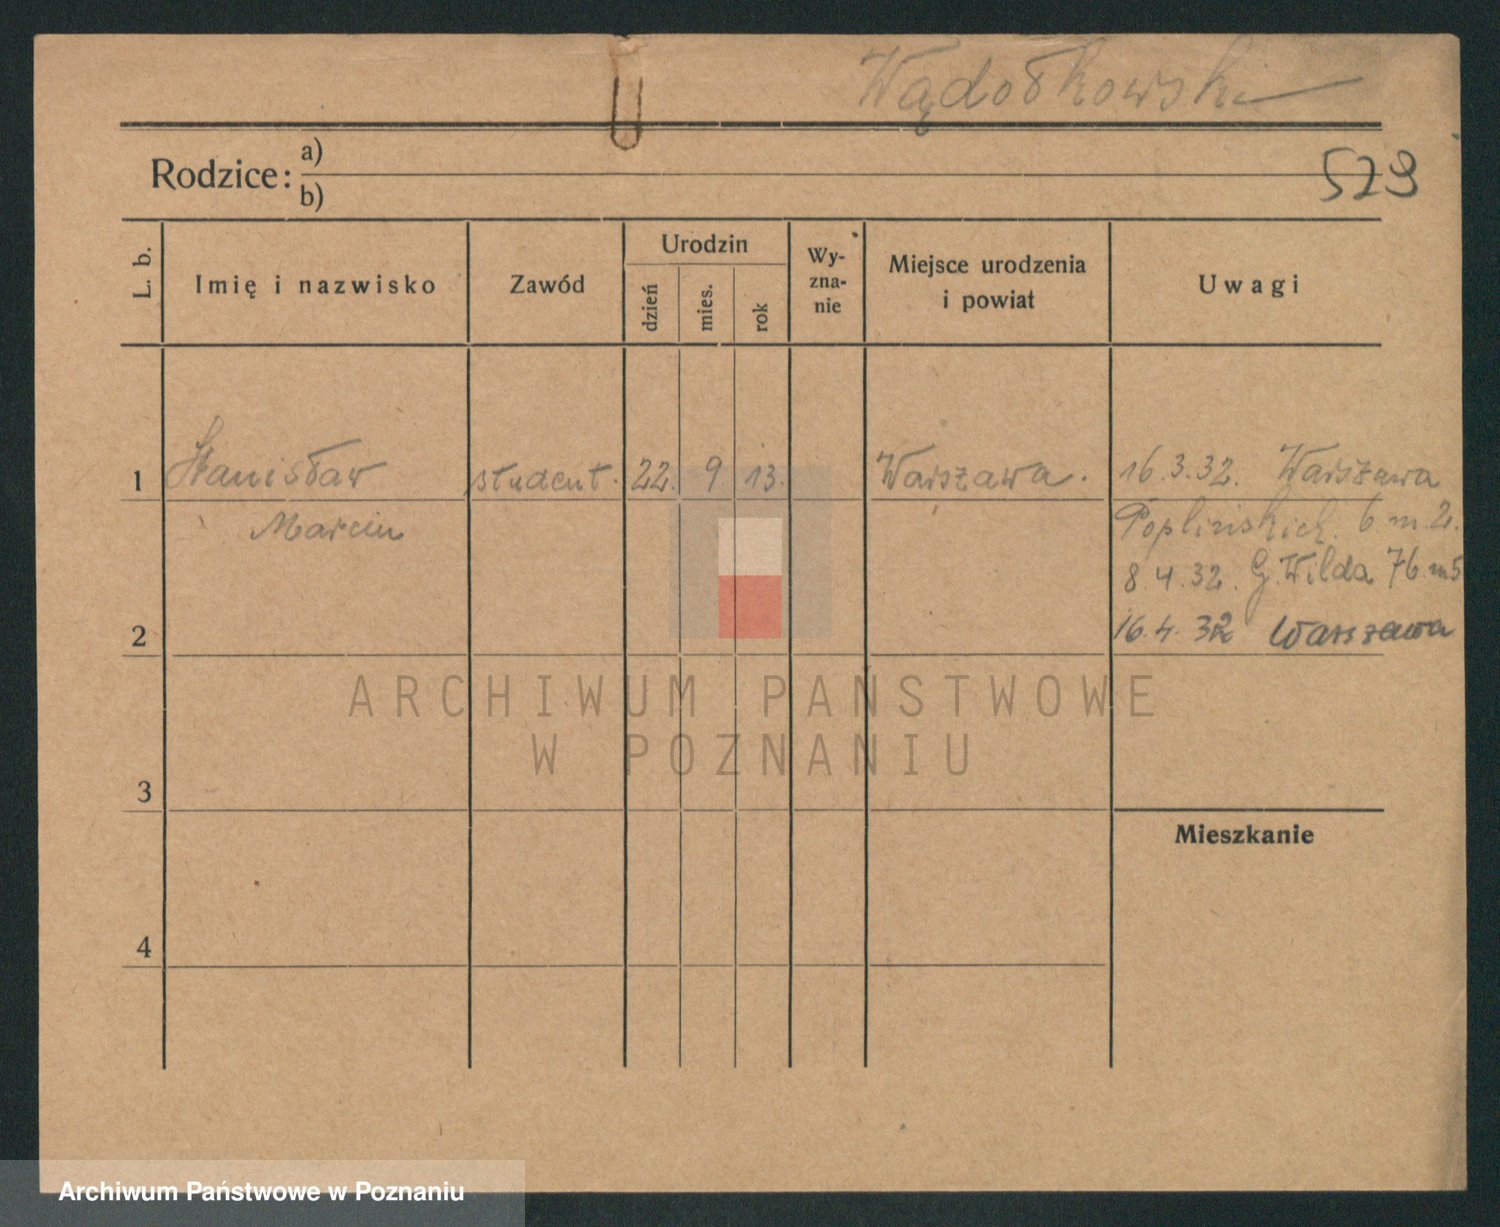 Wądołkowski
Rodzice: a)
b)
529
L. b.
Imię i nazwisko
Zawód
Urodzin
dzień
mies.
rok
Wy-
zna-
nie
Miejsce urodzenia
i powiat
Uwagi
1 Stanisław student. 22. 9. 13. Warszawa. 16.3.32. Warszawa
Marcin Poplińskich. 6 m. 2.
8.4.32. G. Wilda 76 m 5
2 16.4.32 Warszawa
ARCHIWUM PAŃSTWOWE
W POZNANIU
3
Mieszkanie
4
Archiwum Państwowe w Poznaniu